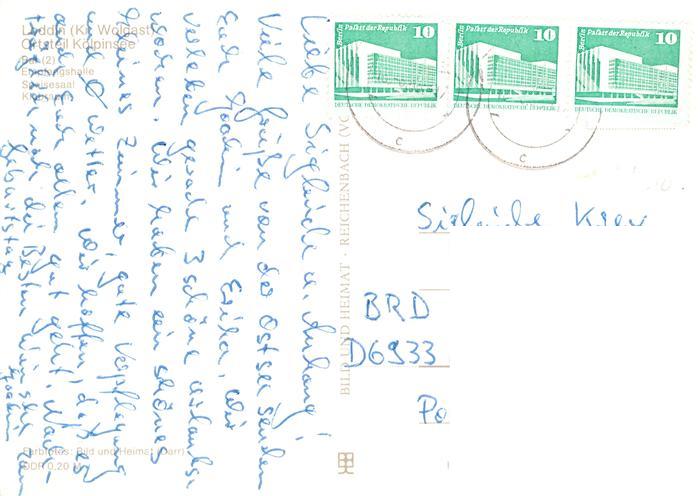 Loddin (Kr. Wolgast)
Ortsteil Kölpinsee
Bar (2)
Empfangshalle
Speisesaal
Klubraum
Liebe Sieglinde u. Anhang!
Viele Grüße von der Ostsee senden
Euch Joachim und Erika. Wir
verleben gerade 3 schöne Urlaubs-
wochen. Wir haben ein schönes
kleines Zimmer, gute Verpflegung
und Wetter. Wir hoffen, daß es
auch Euch allen gut geht. Nach-
träglich noch die besten Wünsche zum
Geburtstag
Joachim
Farbfotos: Bild und Heimat (Darr)
DDR 0,20 M
BILD UND HEIMAT · REICHENBACH (VO
Berlin Palast der Republik 10
DEUTSCHE DEMOKRATISCHE REPUBLIK
Berlin Palast der Republik 10
DEUTSCHE DEMOKRATISCHE REPUBLIK
Berlin Palast der Republik 10
DEUTSCHE DEMOKRATISCHE REPUBLIK
c
c
Sieglinde
BRD
D6933
Po